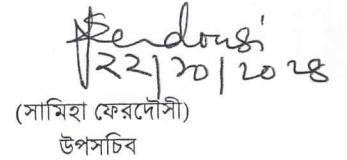 Ferdousi
২২/১০/২০২৪
(সামিহা ফেরদৌসী)
উপসচিব